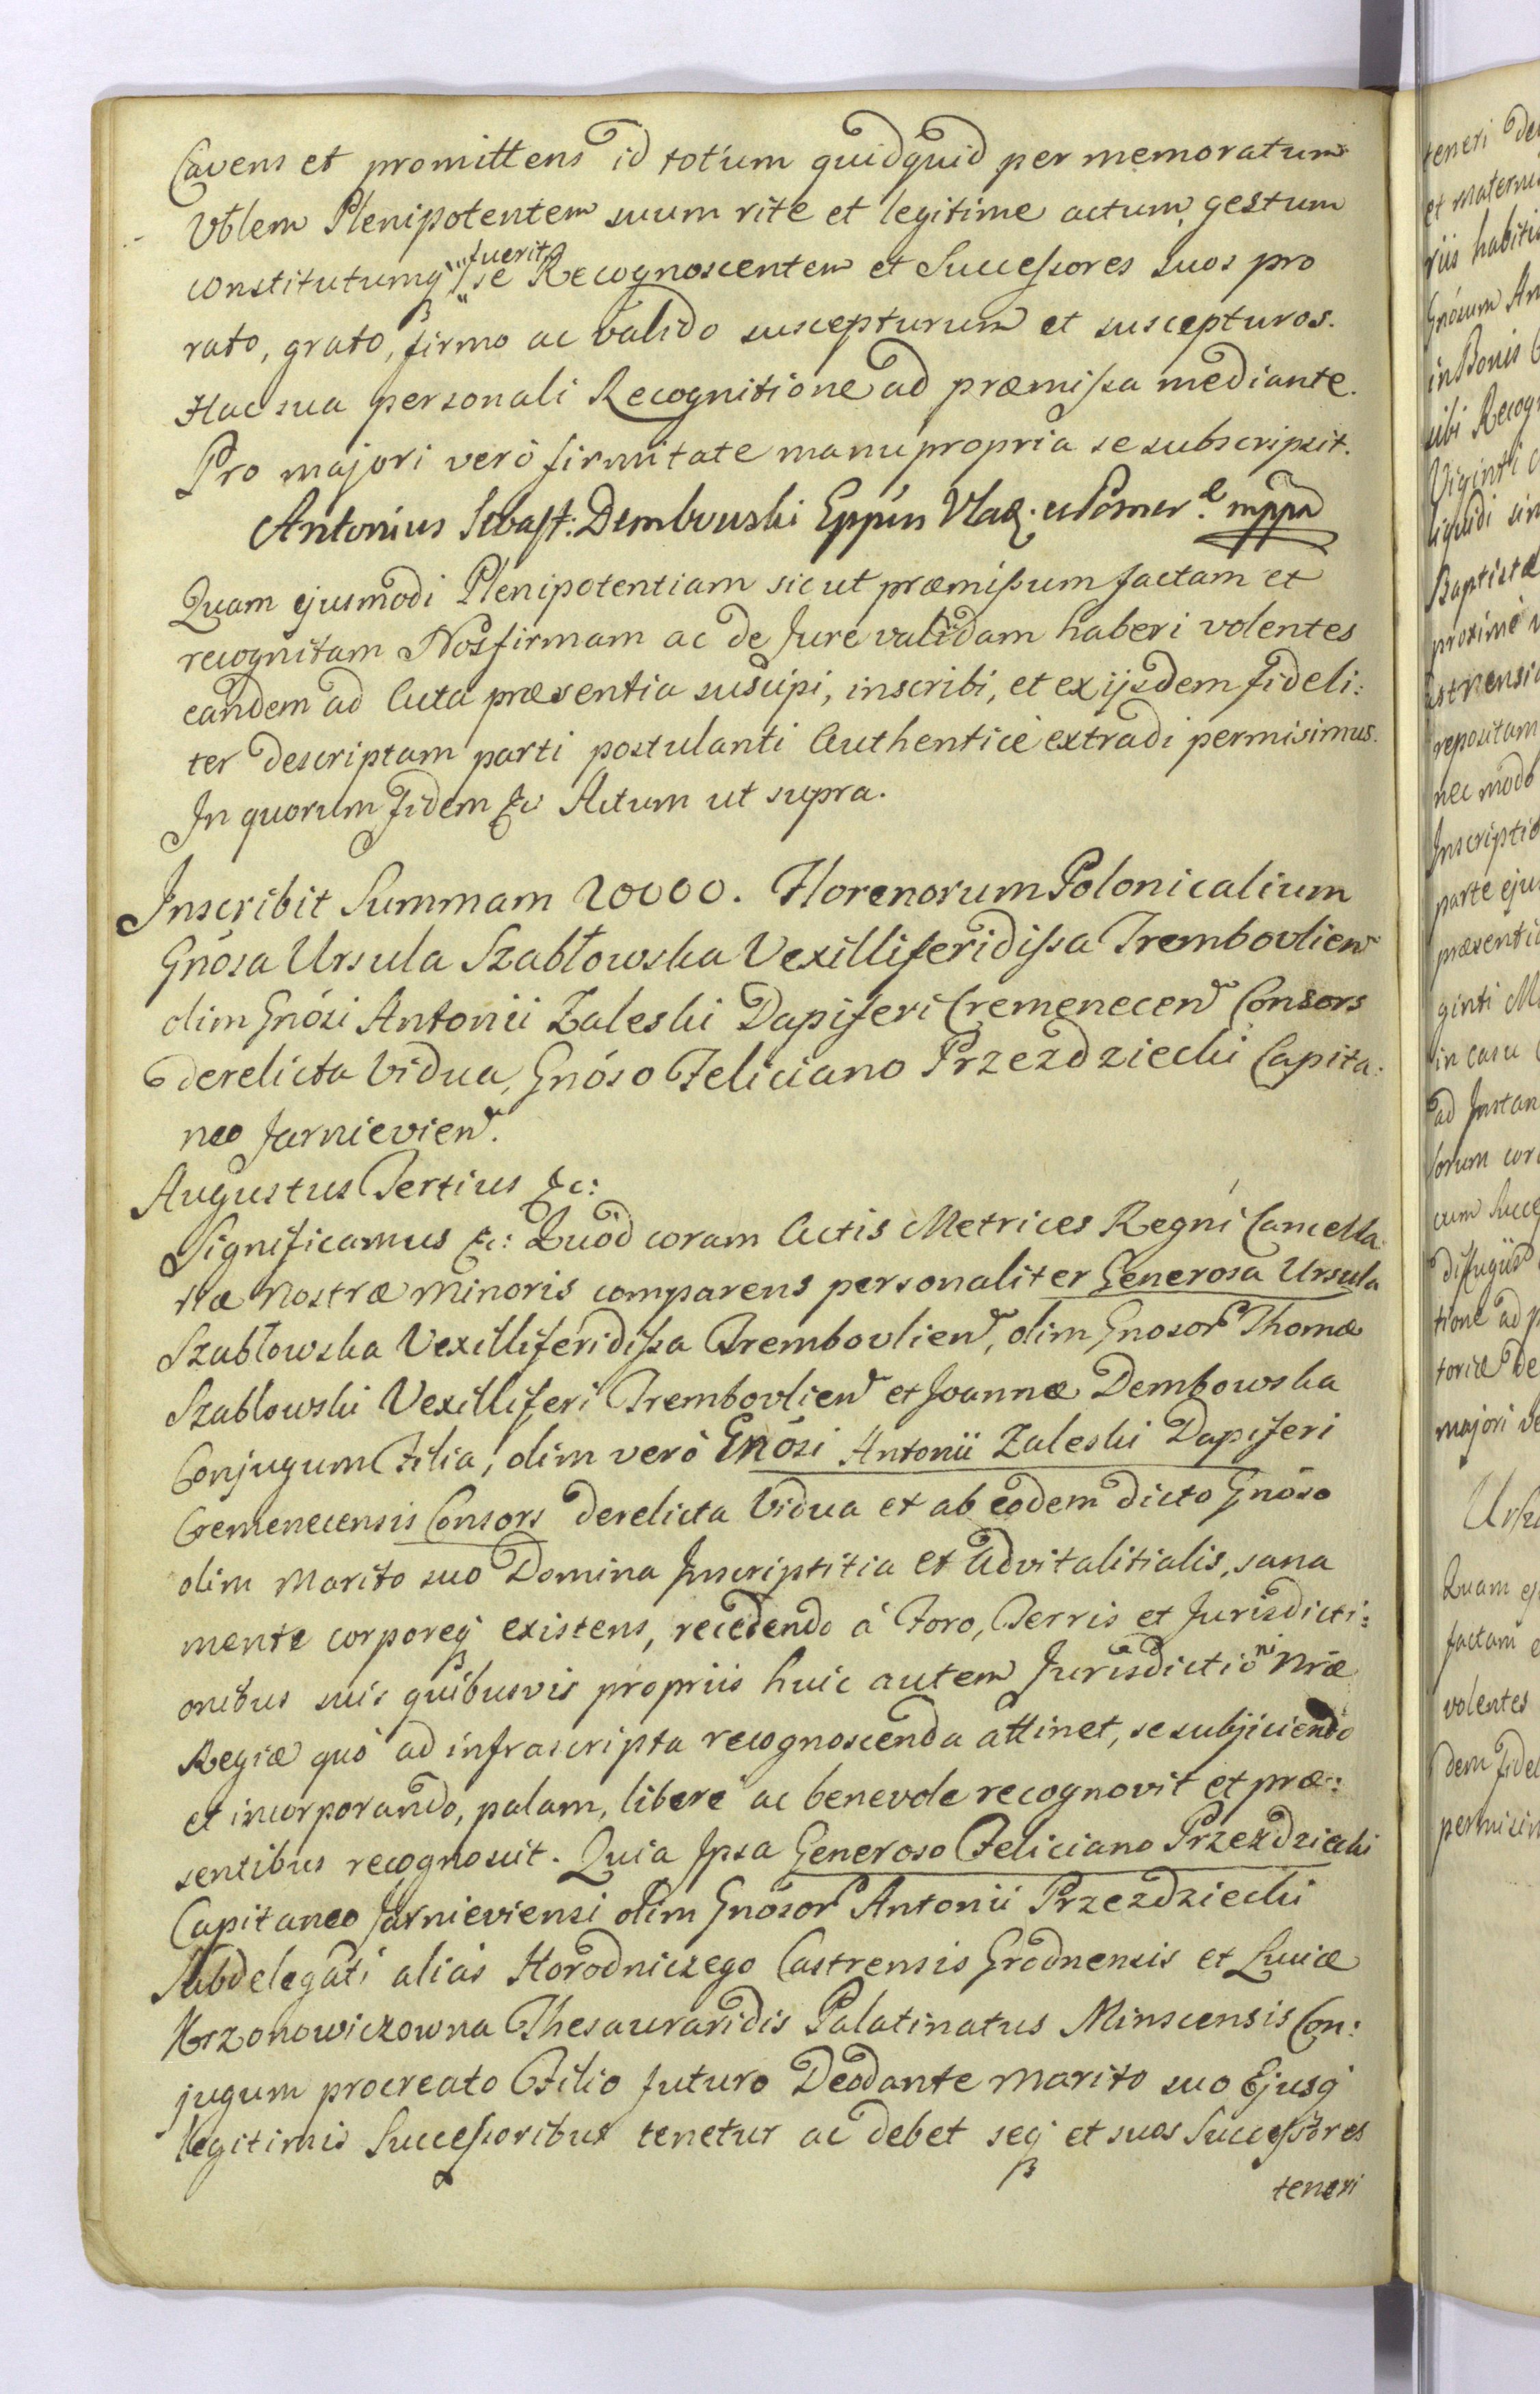 Cavens et promittens id totum quidquid per memoratum
Vblem Plenipotentem suum rite et legitime actum, gestum
constitutumq fuerit, se Recognoscentem et Successores suos pro
rato, grato, firmo ac valido suscepturum et suscepturos.
Hac sua personali Recognitione ad præmissa mediante.
Pro majori verò firmitate manu propria se subscripsit.
Antonius Sebast: Dembowski Eppus Vlad. et Pomer. mppa
Quam ejusmodi Plenipotentiam sic ut præmissum factam et
recognitam Nos firmam ac de Jure validam haberi volentes
eandem ad Acta præsentia suscipi, inscribi, et ex ijsdem fideli:
ter descriptam parti postulanti Authenticè extradi permisimus.
In quorum fidem &c Actum ut supra.
Inscribit Summam 20000. Florenorum Polonicalium
Gnosa Ursula Szabłowska Vexilliferidissa Trembovlien
olim Gnosi Antonii Zaleski Dapiferi Cremenecen Consors
derelicta Vidua, Gnoso Feliciano Przezdziecki Capita:
neo Jarnievien.
Augustus Tertius &c:
Significamus &c: Quòd coram Actis Metrices Regni Cancella:
riæ Nostræ Minoris comparens personaliter Generosa Ursula
Szabłowska Vexilliferidissa Trembovlien, olim Gnosor Thomæ
Szabłowski Vexilliferi Trembovlien et Joannæ Dembowska
Conjugum Filia, olim verò Gnosi Antonii Zaleski Dapiferi
Cremenecensis Consors derelicta Vidua et ab eodem dicto Gnoso
olim Marito suo Domina Inscriptitia et Advitalitialis, sana
mente corporeq existens, recedendo à Foro, Terris et Jurisdicti:
onibus suis quibusvis propriis huic autem Jurisdictioni Nræ
Regiæ quò ad infrascripta recognoscenda attinet, se subjiciendo
et incorporando, palam, liberè ac benevole recognovit et præ:
sentibus recognoscit. Quia Ipsa Generoso Feliciano Przezdziecki
Capitaneo Jarnieviensi olim Gnosor Antonii Przezdziecki
Subdelegati alias Horodniczego Castrensis Grodnensis et Luciæ
Thesauraridis Palatinatus Minscensis Con:
jugum procreato Filio futuro Deodante Marito suo Ejusq
legitimis Successoribus tenetur ac debet seq et suos Successores
teneri